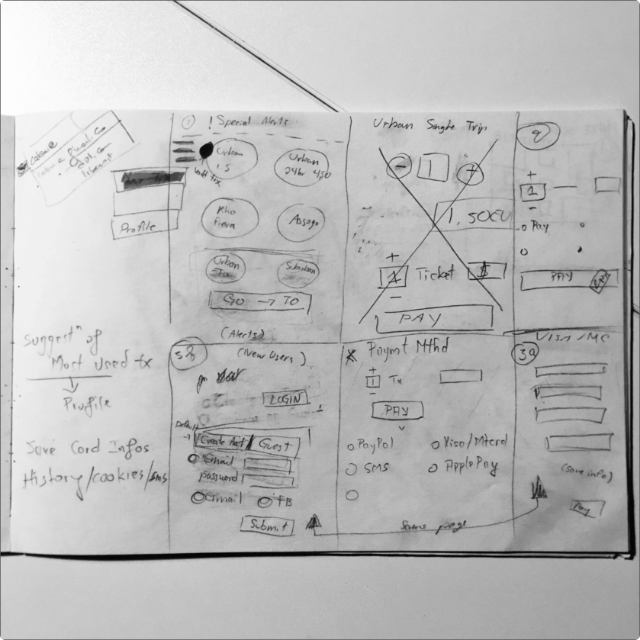 Profile
Suggestn of
Most Used tx
Profile
Save Card Infos
History/cookies/sms
1
! Special Alerts
Urban
1.5
Urban
24hr 4.50
Rho
Fiera
Urban
Suburban
GO → TO
(Alerts)
Urban Single Trip
- 1 +
1.50EU
+
1 Ticket
-
PAY
2
+
1
-
Pay
PAY
(New Users)
LOGIN
Create Acct / Guest
Email
Password
Gmail
FB
Submit
Paymt Mthd
+
1 Tx
PAY
PayPal
Visa/Mtcrd
SMS
Apple Pay
Same page
3a
VISA/MC
(Save info)
Pay